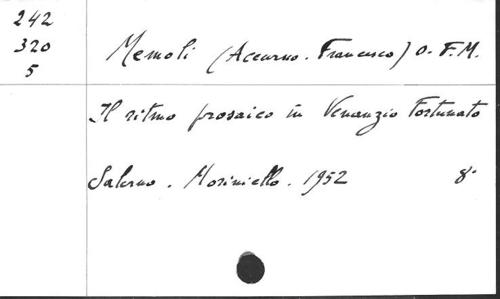 242
320
5
Memoli (Accurno. Francesco) O.F.M.
Il ritmo prosaico in Venanzio Fortunato
Salerno. Moriniello. 1952 8°